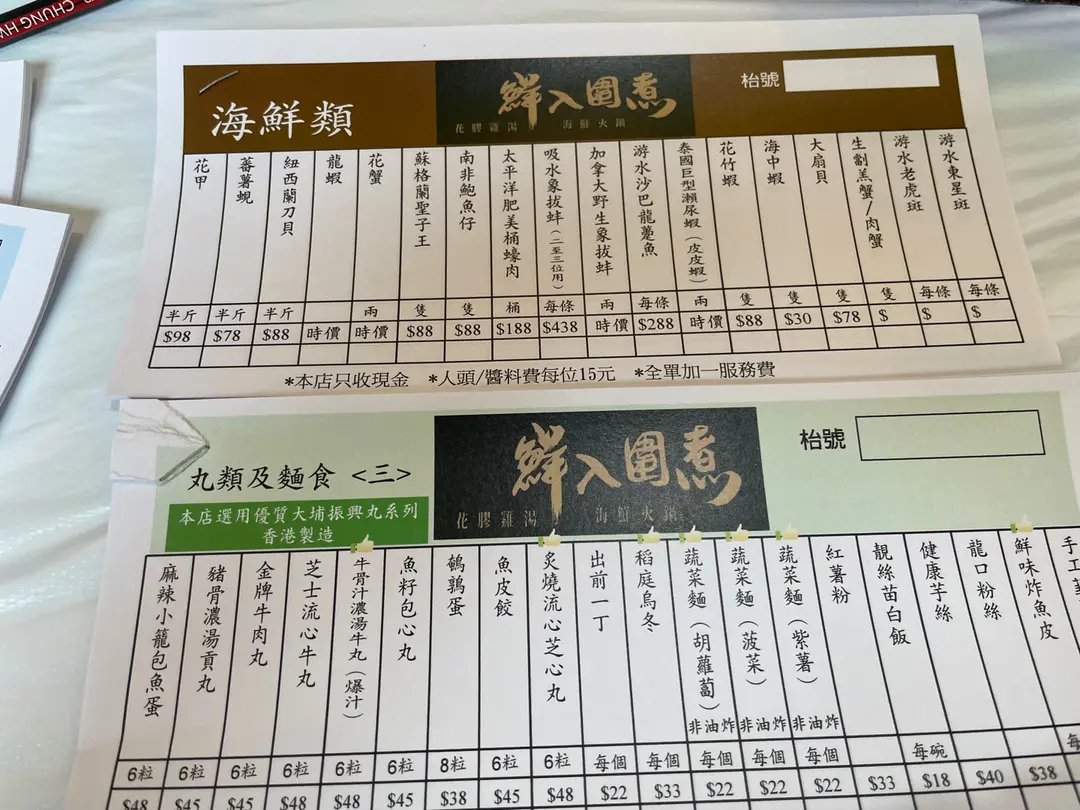 CHUNG HW
海鮮類
鮮入圍煮
花膠雞湯 海鮮火鍋
枱號
花甲
蕃薯蜆
紐西蘭刀貝
龍蝦
花蟹
蘇格蘭聖子王
南非鮑魚仔
太平洋肥美桶蠔肉
吸水象拔蚌（二至三位用）
加拿大野生象拔蚌
游水沙巴龍躉魚
泰國巨型瀨尿蝦（皮皮蝦）
花竹蝦
海中蝦
大扇貝
生劏羔蟹/肉蟹
游水老虎斑
游水東星斑
半斤 半斤 半斤 兩 隻 隻 桶 每條 兩 每條 兩 隻 隻 隻 隻 每條 每條
$98 $78 $88 時價 時價 $88 $88 $188 $438 時價 $288 時價 $88 $30 $78 $ $ $
*本店只收現金 *人頭/醬料費每位15元 *全單加一服務費
丸類及麵食 <三>
本店選用優質大埔振興丸系列
香港製造
鮮入圍煮
花膠雞湯 海鮮火鍋
枱號
麻辣小籠包魚蛋
豬骨濃湯貢丸
金牌牛肉丸
芝士流心牛丸
牛骨汁濃湯牛丸（爆汁）
魚籽包心丸
鵪鶉蛋
魚皮餃
炙燒流心芝心丸
出前一丁
稻庭烏冬
蔬菜麵（胡蘿蔔）非油炸
蔬菜麵（菠菜）非油炸
蔬菜麵（紫薯）非油炸
紅薯粉
靚絲苗白飯
健康芋絲
龍口粉絲
鮮味炸魚皮
手工
6粒 6粒 6粒 6粒 6粒 6粒 8粒 6粒 6粒 每個 每個 每個 每個 每個 每碗 每
$48 $45 $45 $48 $48 $45 $38 $45 $48 $22 $33 $22 $22 $22 $33 $18 $40 $38